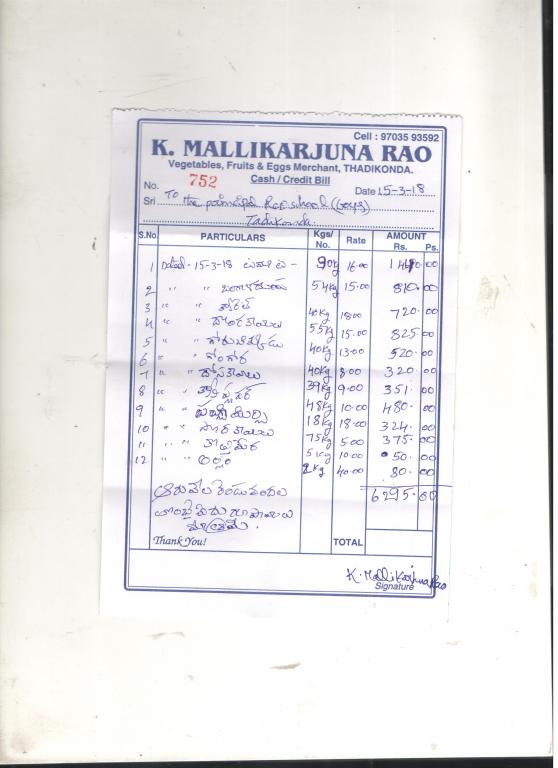 Cell : 97035 93592
K. MALLIKARJUNA RAO
Vegetables, Fruits & Eggs Merchant, THADIKONDA.
Cash / Credit Bill
No. 752 Date 15-3-18
Sri To the principal school (Boys)
Tadikonda
S.No. PARTICULARS Kgs/No. Rate AMOUNT Rs. Ps.
1 Dated - 15-3-18 టమాట - 90kg 16.00 1440.00
2 " " 54kg 15.00 810.00
3 " " క్యారెట్ 40kg 18.00 720.00
4 " " దొండకాయలు 55kg 15.00 825.00
5 " " గోరుచిక్కుడు 40kg 13.00 520.00
6 " " గోంగూర 40kg 8.00 320.00
7 " " దోసకాయలు 39kg 9.00 351.00
8 " " 48kg 10.00 480.00
9 " " 18kg 18.00 324.00
10 " " సొరకాయలు 75kg 5.00 375.00
11 " " కొత్తిమీర 5kg 10.00 50.00
12 " " అల్లం 2kg 40.00 80.00
ఆరువేల రెండువందల 6295.00
యాభై రూపాయలు
మాత్రమే.
Thank You! TOTAL
K. Mallikarjuna Rao
Signature